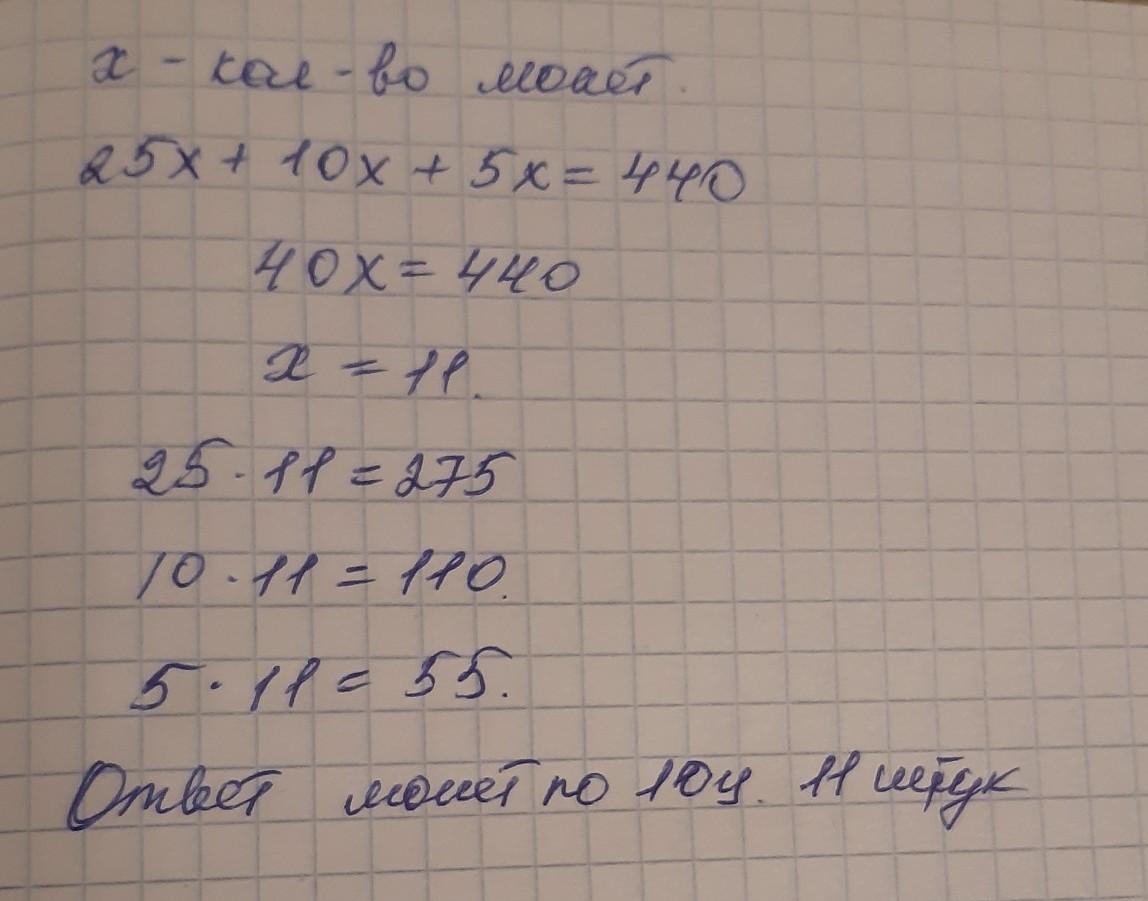 х - кол-во монет.
25х + 10х + 5х = 440
40х = 440
х = 11.
25 · 11 = 275
10 · 11 = 110.
5 · 11 = 55.
Ответ монет по 10ц. 11 штук